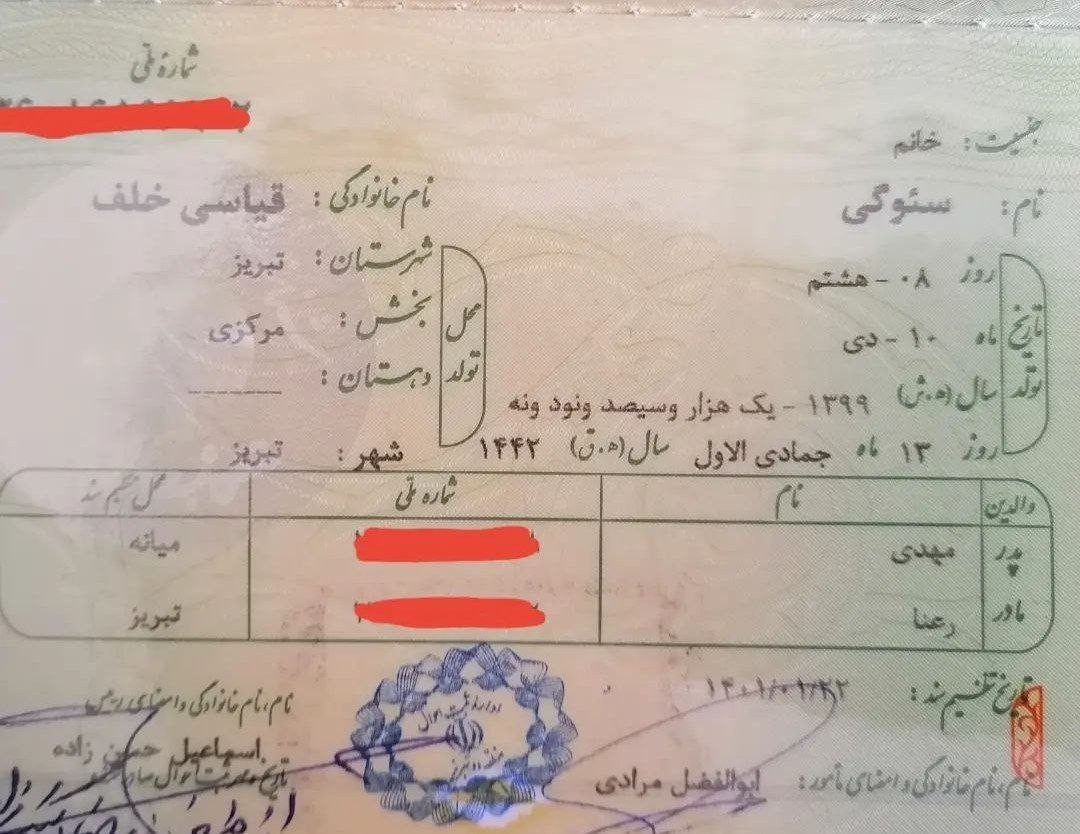 شماره ملی
جنسیت: خانم
نام: سئوگی
نام خانوادگی: قیاسی خلف
تاریخ تولد
روز ۰۸ - هشتم
ماه ۱۰ - دی
سال (ه.ش) ۱۳۹۹ - یک هزار وسیصد ونود ونه
روز ۱۳ ماه جمادی الاول سال (ه.ق) ۱۴۴۲
محل تولد
شهرستان: تبریز
بخش: مرکزی
دهستان: -------
شهر: تبریز
والدین نام شماره ملی محل تنظیم سند
پدر مهدی میانه
مادر رعنا تبریز
تاریخ تنظیم سند: ۱۴۰۱/۰۱/۲۲
نام، نام خانوادگی و امضای مأمور: ابوالفضل مرادی
نام، نام خانوادگی و امضای رئیس
اسماعیل حسن زاده